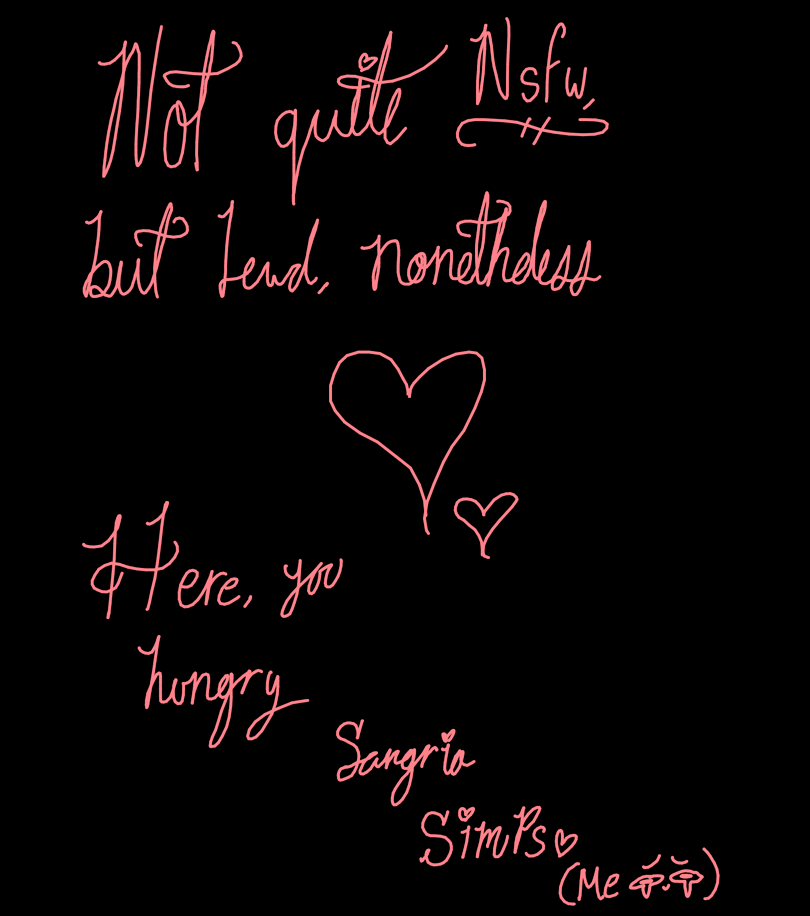 Not quite Nsfw,
but Lewd, nonetheless
Here, you
hungry
Sangria
Simps
(Me )